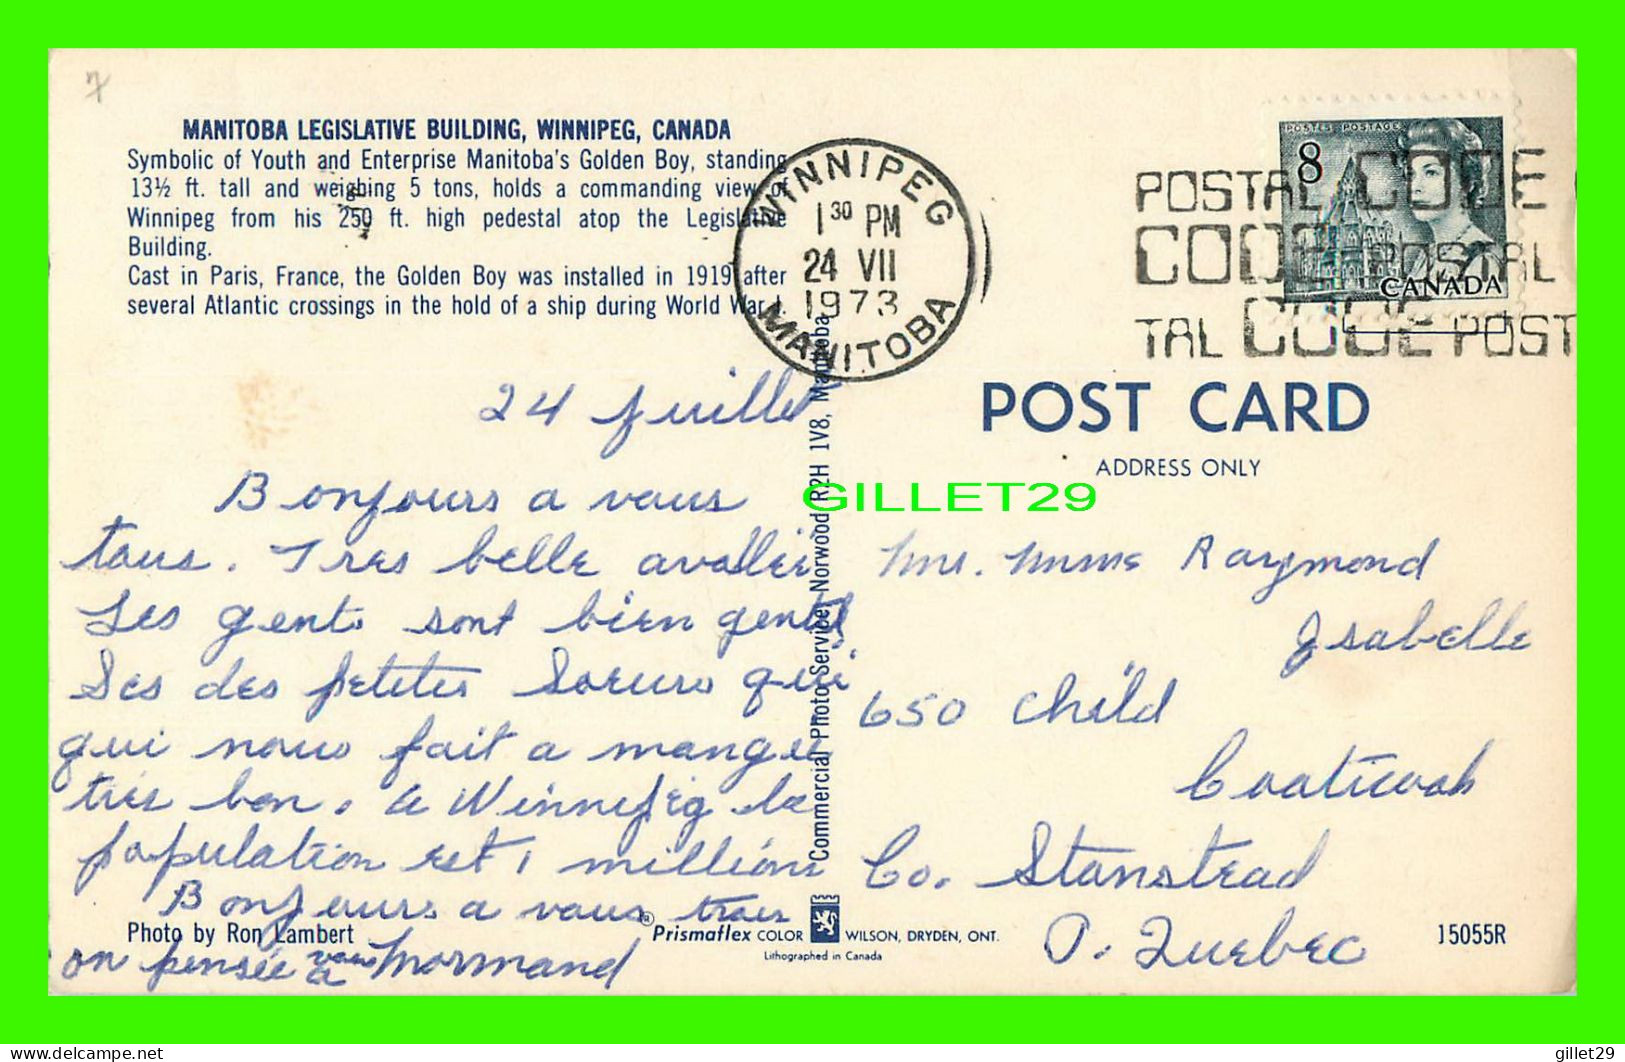 7
MANITOBA LEGISLATIVE BUILDING, WINNIPEG, CANADA
Symbolic of Youth and Enterprise Manitoba's Golden Boy, standing
13½ ft. tall and weighing 5 tons, holds a commanding view of
Winnipeg from his 250 ft. high pedestal atop the Legislative
Building.
Cast in Paris, France, the Golden Boy was installed in 1919 after
several Atlantic crossings in the hold of a ship during World War I.
WINNIPEG
1 30 PM
24 VII
1973
MANITOBA
POSTES POSTAGE
8
CANADA
POSTAL CODE
CODE POSTAL
TAL CODE POST
24 juille
Bonjours a vous
tous. Tres belle
Les gents sont bien gentil
Ses des petites Soeurs qui
qui nous fait a mangé
très bon. a Winnipeg la
population est 1 millions
Bonjours a vous trois
on pensée a vous Normand
Photo by Ron Lambert
Commercial Photo Service, Norwood R2H 1V8, Manitoba
POST CARD
ADDRESS ONLY
GILLET29
Mr. Mme Raymond
Isabelle
650 Child
Coaticook
Co. Stanstead
P. Quebec
® Prismaflex COLOR WILSON, DRYDEN, ONT.
Lithographed in Canada
15055R
delcampe.net
gillet29